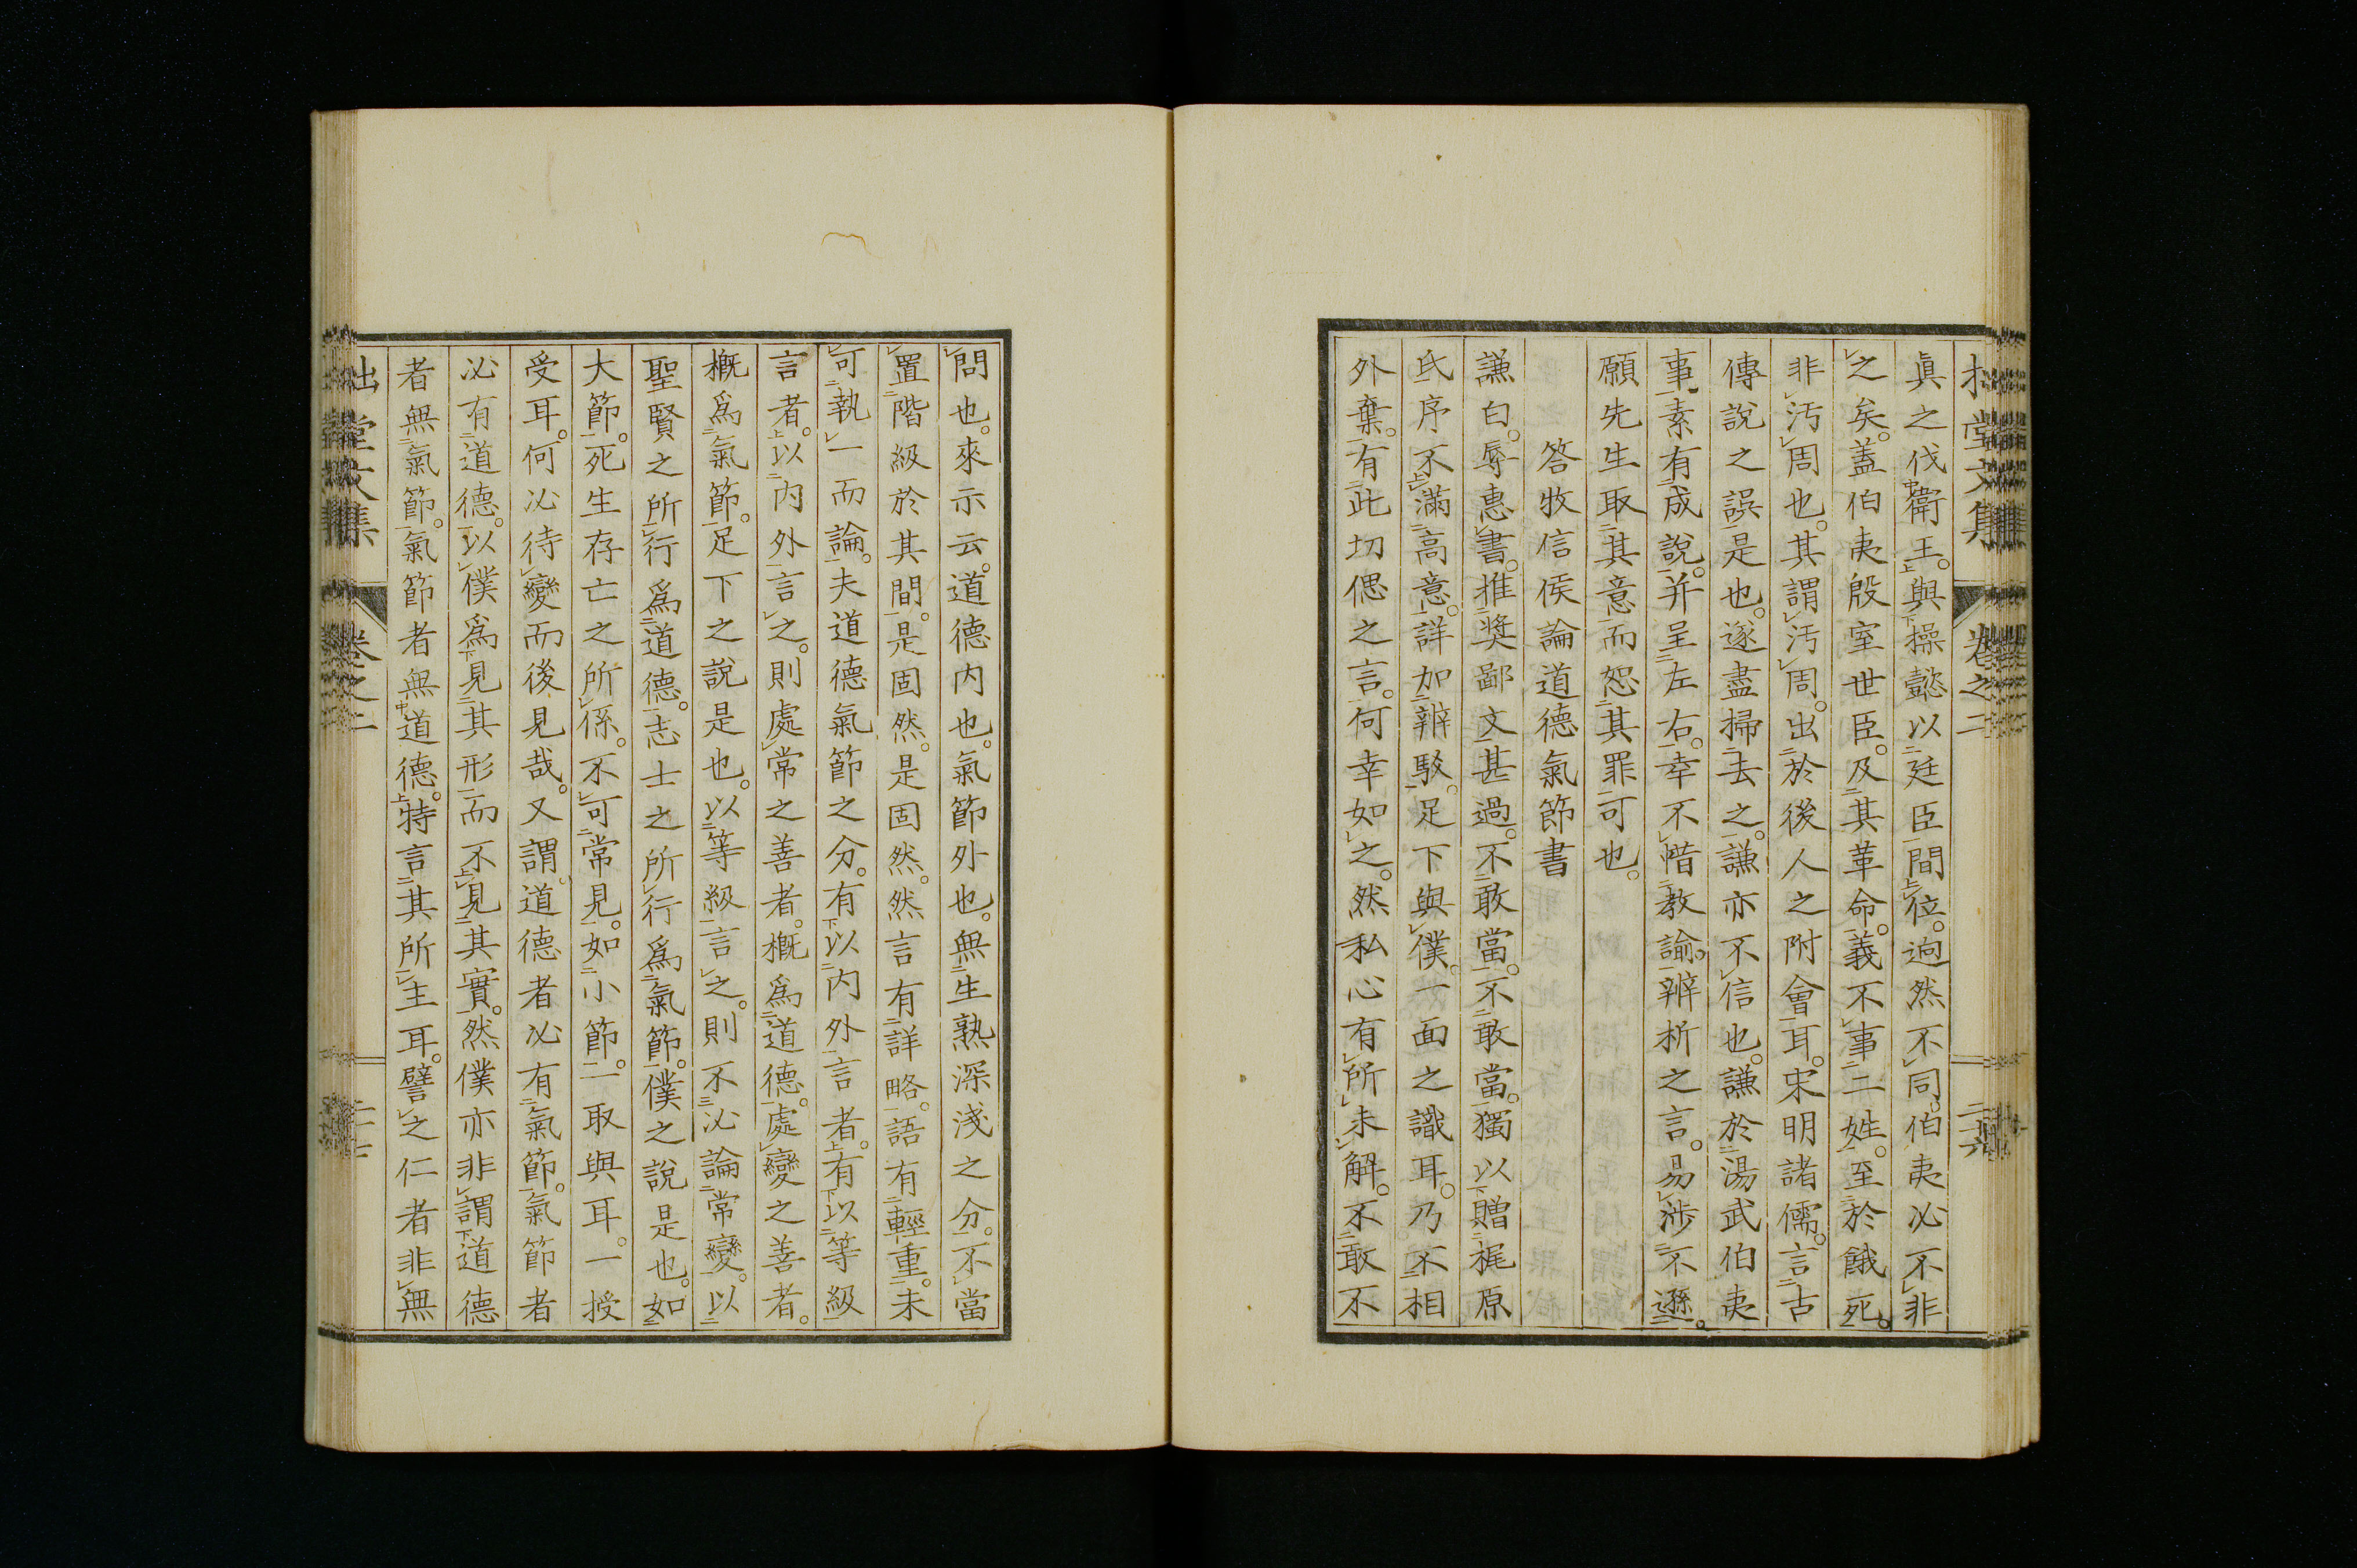 拙堂文集 卷之二 二十六
眞之伐衛王。與操懿以廷臣間位。逈然不同。伯夷必不非
之矣。蓋伯夷殷室世臣。及其革命。義不事二姓。至於餓死。
非汚周也。其謂汚周。出於後人之附會耳。宋明諸儒。言古
傳說之誤是也。遂盡掃去之。謙亦不信也。謙於湯武伯夷
事素有成說。并呈左右。幸不惜教諭。辨析之言。易涉不遜。
願先生取其意而恕其罪可也。
答牧信侯論道德氣節書
謙白。辱惠書。推奬鄙文甚過。不敢當。不敢當。獨以贈梶原
氏序不滿高意。詳加辨駁。足下與僕。一面之識耳。乃不相
外棄。有此切偲之言。何幸如之。然私心有所未解。不敢不
問也。來示云。道德内也。氣節外也。無生熟深淺之分。不當
置階級於其間。是固然。是固然。然言有詳略。語有輕重。未
可執一而論。夫道德氣節之分。有以内外言者。有以等級
言者。以内外言之。則處常之善者。概爲道德。處變之善者。
概爲氣節。足下之說是也。以等級言之。則不必論常變。以
聖賢之所行爲道德。志士之所行爲氣節。僕之說是也。如
大節。死生存亡之所係。不可常見。如小節。一取與耳。一授
受耳。何必待變而後見哉。又謂。道德者必有氣節。氣節者
必有道德。以僕爲見其形而不見其實。然僕亦非謂道德
者無氣節。氣節者無道德。特言其所主耳。譬之仁者非無
拙堂文集 卷之二 二十七